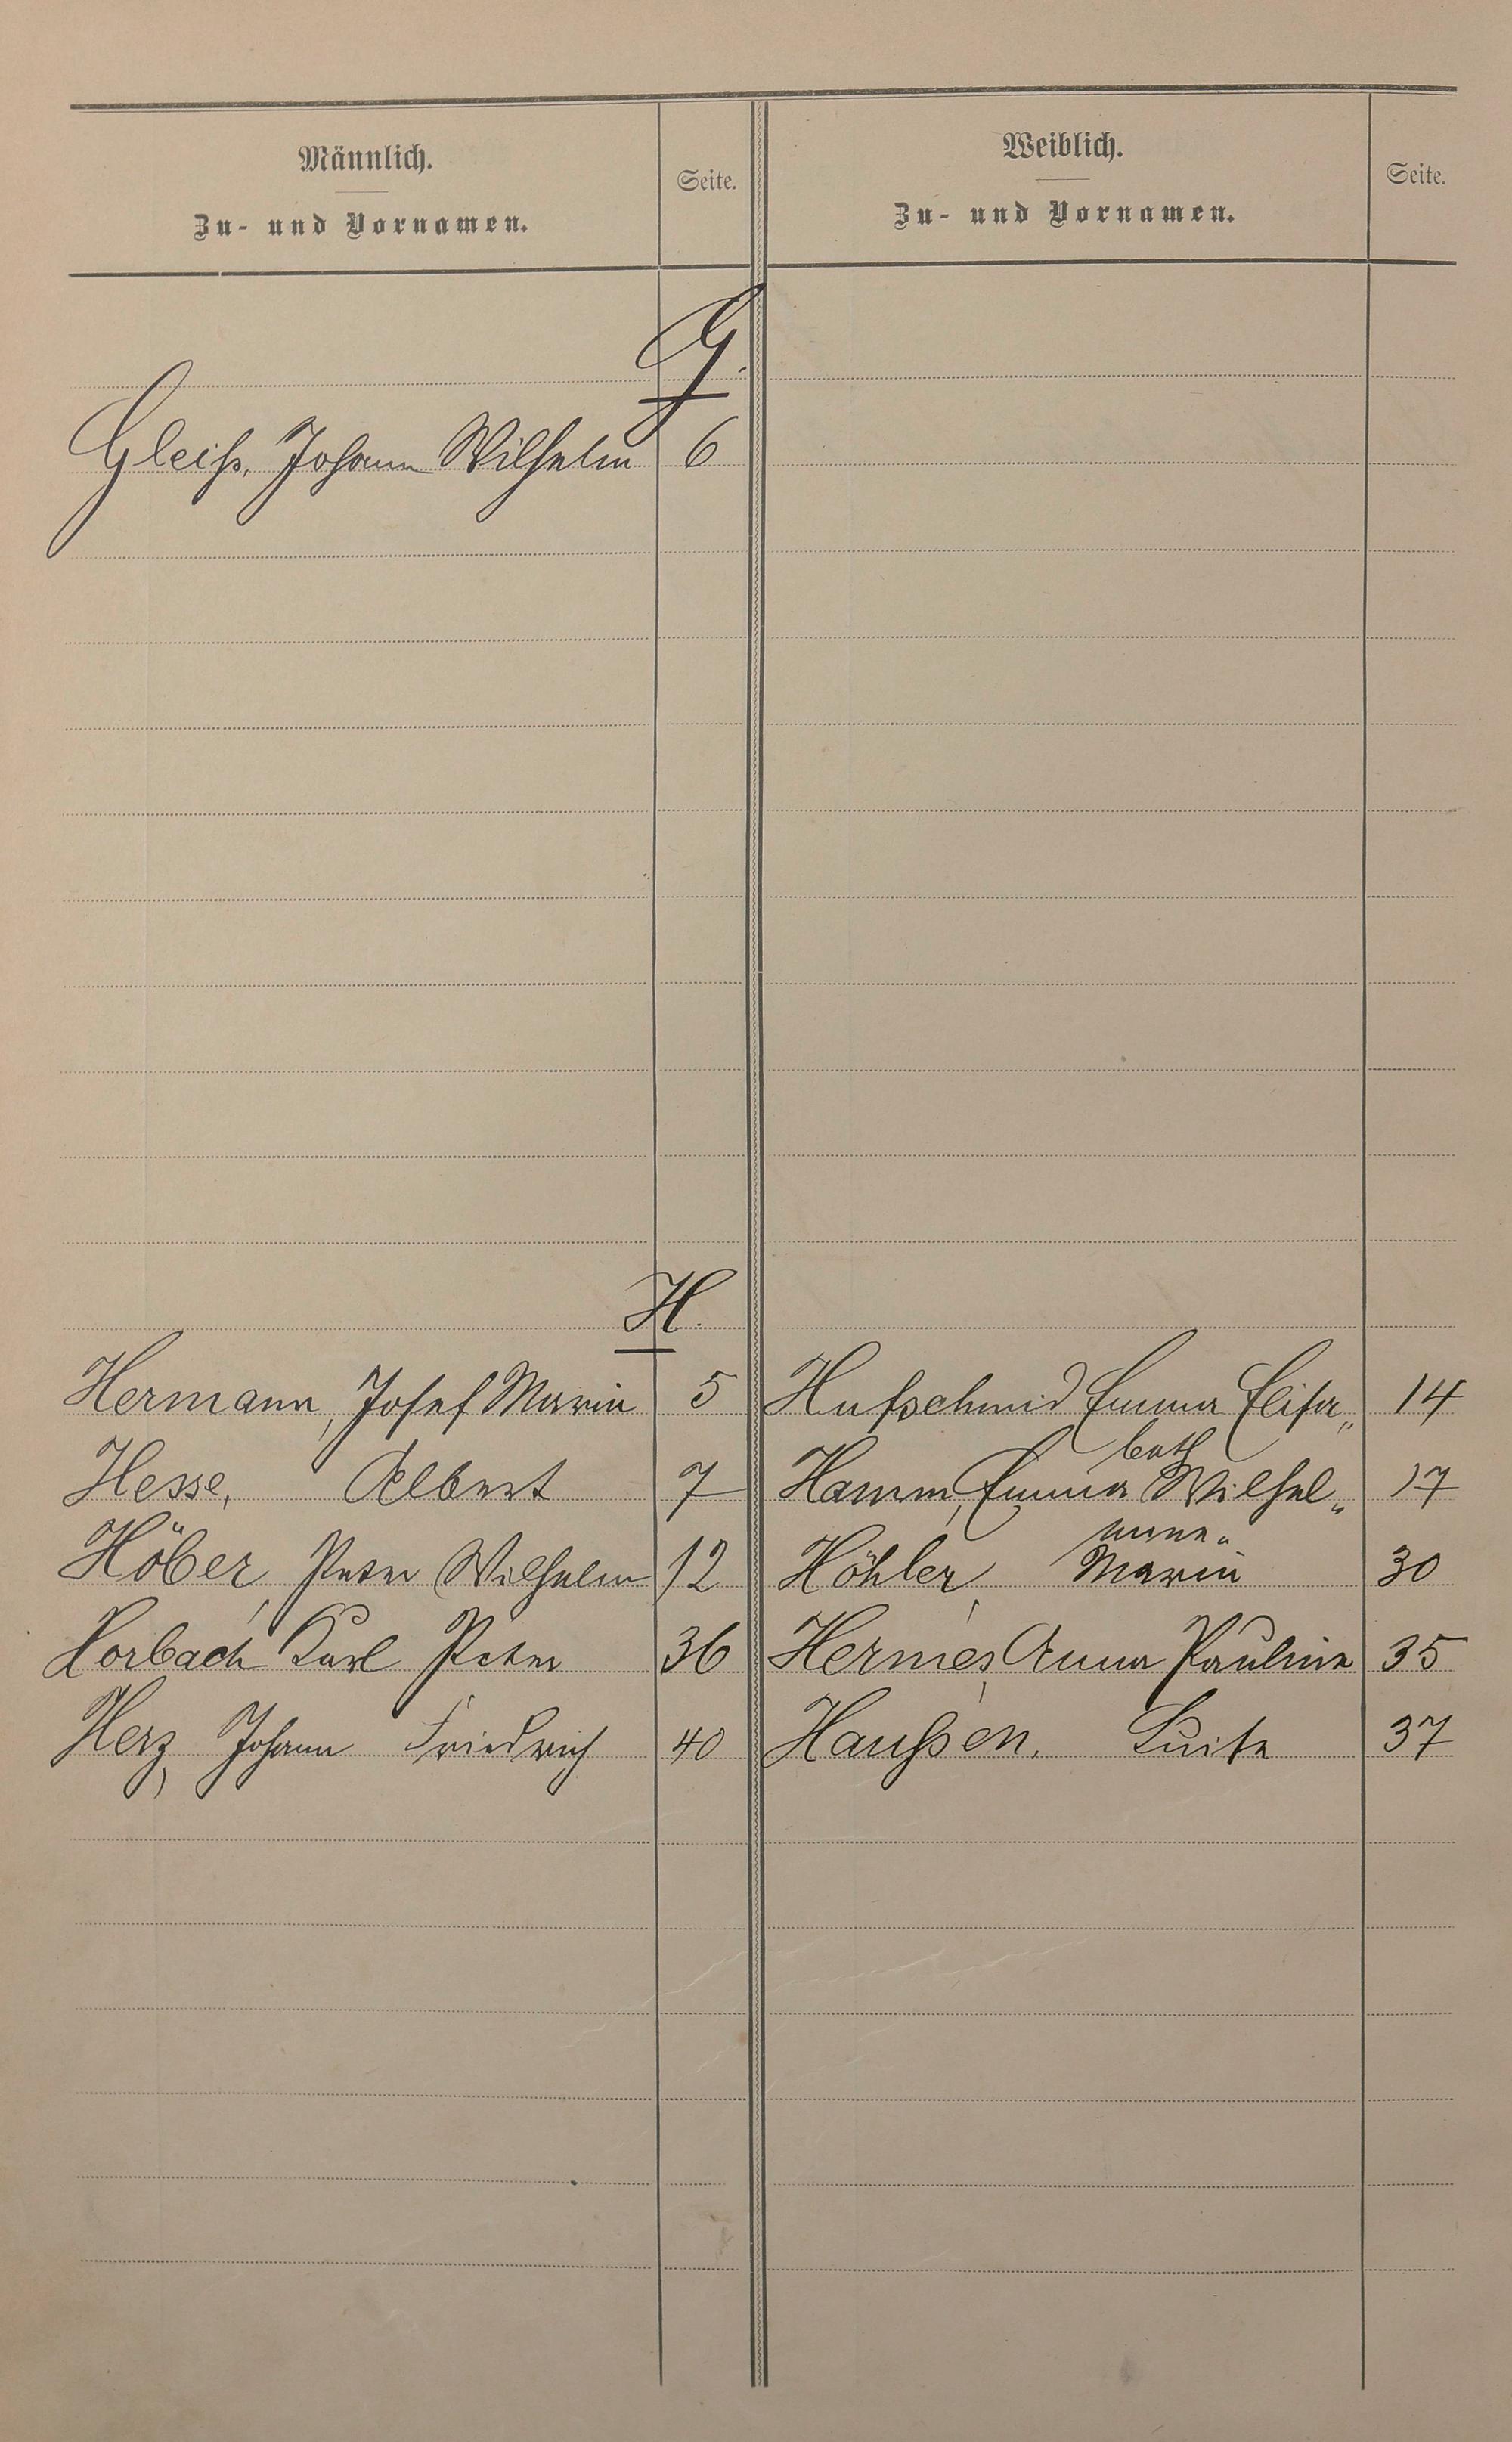 Männlich.
Zu- und Vornamen.
Seite.
Weiblich.
Zu- und Vornamen.
Seite.
G.
Gleiß, Johann Wilhelm 6
H.
Hermann, Josef Maria 5 Hufschmid Emma Elisa„ 14
beth
Hesse, Albert 7 Hamm, Emma Wilhel„ 17
mine„
Höber, Peter Wilhelm 12 Höhler, Maria 30
Horbach Karl Peter 36 Hermes, Anna Pauline 35
Herz, Johann Friedrich 40 Haußen. Luise 37